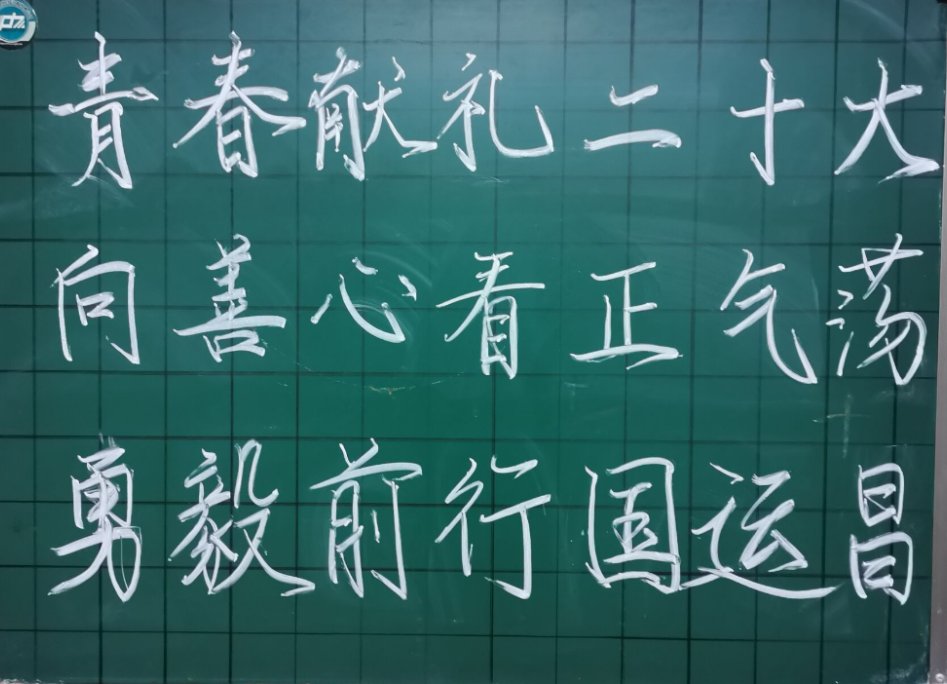 青春献礼二十大
向善心看正气荡
勇毅前行国运昌